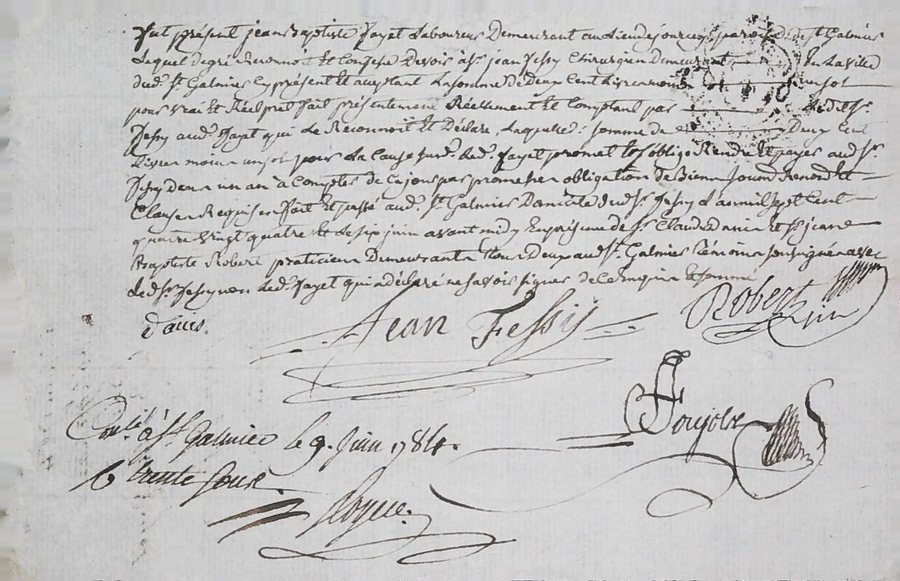 fut présent jean Baptiste fayet Laboureur Demeurant au Lieu des ources paroisse de st Galmier
Lequel de gré Reconnoit et Confesse Devoir à Sr. jean fessy Chirurgien Demeurant en La Ville
dud. St. Galmier Cy présent et aceptant La somme de deux Cent Livres moins un sol
pour vrai et Réel prêt fait présentement Réellement et Comptant par Ledit Sr.
fessy aud. fayet qui Le Reconnoit et Déclare, Laquelle somme de Deux Cent
Livres moins un sol pour La Cause susd. Led. fayet promet et s'oblige Rendre et payer aud. Sr.
fessy dans un an à Compter de Ce jour par promesse obligation de Biens soumis Renond et
Clauses Requises fait et passé aud. St. Galmier Domicile dud. Sr. fessy L'an mil sept Cent
quatre vingt quatre et Le six juin avant midy En présence de Sr. Claude et Sr. jean
Baptiste Robert praticiens Demeurants tous Deux aud. St. Galmier témoins soussignés avec
Led. Sr. fessy non Led. fayet qui a déclaré ne savoir signer de Ce Enquis et sommé
Jean Fessÿ
Robert
Contlé à St. Galmier le 9. Juin 1784.
trente sous.